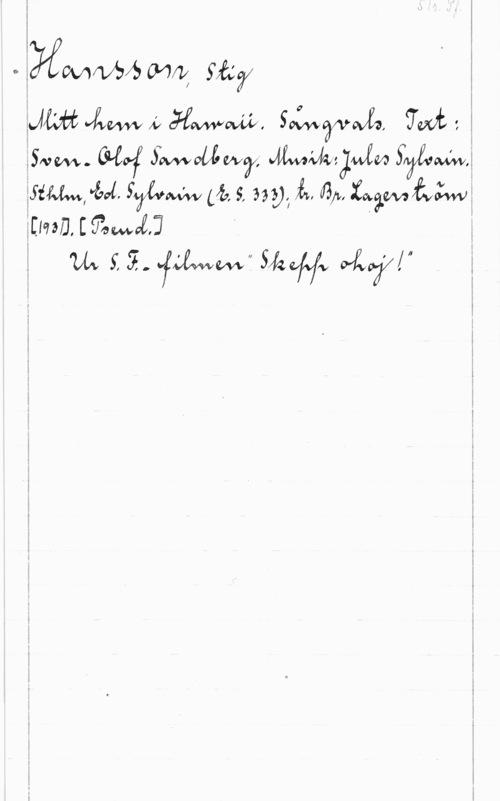 Hansson, Stig
Mitt hem i Hawaii. Sångvals. Text:
Sven-Olof Sandberg. Musik: Jules Sylvain.
Sthlm, Ed. Sylvain (E. S. 333); tr. Br. Lagerström
[193]]. [Pseud.]
Ur S. F.-filmen "Skepp ohoj!"